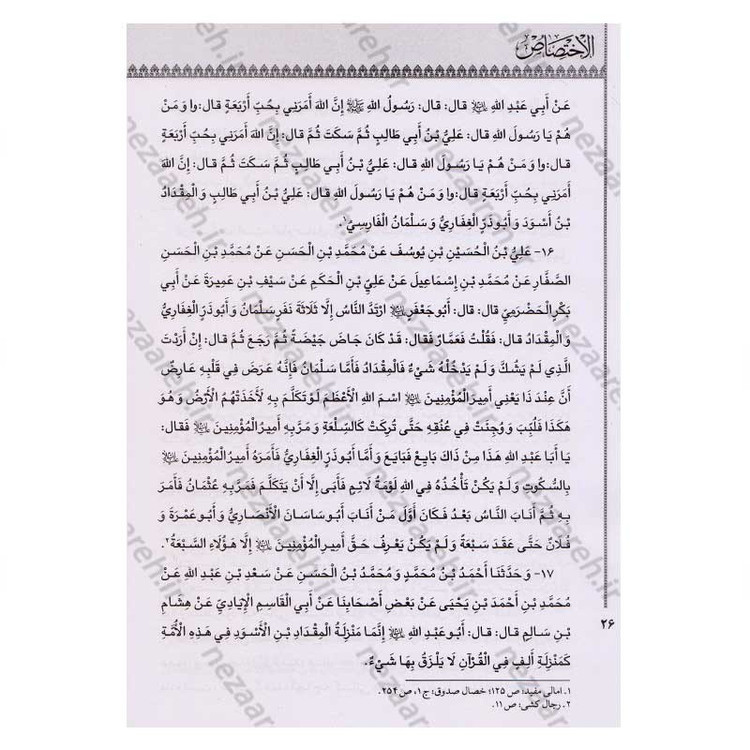 الاختصاص
عَنْ أَبِي عَبْدِ اللهِ عليه السلام قال: قال: رَسُولُ اللهِ ﷺ إِنَّ اللهَ أَمَرَنِي بِحُبِّ أَرْبَعَةٍ قال: وا وَ مَنْ
هُمْ يَا رَسُولَ اللهِ قال: عَلِيُّ بْنُ أَبِي طالِبٍ ثُمَّ سَكَتَ ثُمَّ قال: إِنَّ اللهَ أَمَرَنِي بِحُبِّ أَرْبَعَةٍ
قال: وا وَ مَنْ هُمْ يَا رَسُولَ اللهِ قال: عَلِيُّ بْنُ أَبِي طالِبٍ ثُمَّ سَكَتَ ثُمَّ قال: إِنَّ اللهَ
أَمَرَنِي بِحُبِّ أَرْبَعَةٍ قال: وا وَ مَنْ هُمْ يَا رَسُولَ اللهِ قال: عَلِيُّ بْنُ أَبِي طالِبٍ وَ الْمِقْدَادُ
بْنُ أَسْوَدَ وَ أَبُوذَرٍّ الْغِفَارِيُّ وَ سَلْمَانُ الْفَارِسِيُّ١.
١٦- عَلِيُّ بْنُ الْحُسَيْنِ بْنِ يُوسُفَ عَنْ مُحَمَّدِ بْنِ الْحَسَنِ عَنْ مُحَمَّدِ بْنِ الْحَسَنِ
الصَّفَّارِ عَنْ مُحَمَّدِ بْنِ إِسْمَاعِيلَ عَنْ عَلِيِّ بْنِ الْحَكَمِ عَنْ سَيْفِ بْنِ عَمِيرَةَ عَنْ أَبِي
بَكْرٍ الْحَضْرَمِيِّ قال: قال: أَبُو جَعْفَرٍ عليه السلام ارْتَدَّ النَّاسُ إِلَّا ثَلَاثَةَ نَفَرٍ سَلْمَانُ وَ أَبُوذَرٍّ الْغِفَارِيُّ
وَ الْمِقْدَادُ قال: فَقُلْتُ فَعَمَّارٌ فقال: قَدْ كَانَ جَاضَ جَيْضَةً ثُمَّ رَجَعَ ثُمَّ قال: إِنْ أَرَدْتَ
الَّذِي لَمْ يَشُكَّ وَ لَمْ يَدْخُلْهُ شَيْءٌ فَالْمِقْدَادُ فَأَمَّا سَلْمَانُ فَإِنَّهُ عَرَضَ فِي قَلْبِهِ عَارِضٌ
أَنَّ عِنْدَ ذَا يَعْنِي أَمِيرَ الْمُؤْمِنِينَ عليه السلام اسْمَ اللهِ الْأَعْظَمَ لَوْ تَكَلَّمَ بِهِ لَأَخَذَتْهُمُ الْأَرْضُ وَ هُوَ
هَكَذَا فَلُبِّبَ وَ وُجِئَتْ فِي عُنُقِهِ حَتَّى تُرِكَتْ كَالسِّلْعَةِ وَ مَرَّ بِهِ أَمِيرُ الْمُؤْمِنِينَ عليه السلام فَقال:
يَا أَبَا عَبْدِ اللهِ هَذَا مِنْ ذَاكَ بَايِعْ فَبَايَعَ وَ أَمَّا أَبُوذَرٍّ الْغِفَارِيُّ فَأَمَرَهُ أَمِيرُ الْمُؤْمِنِينَ عليه السلام
بِالسُّكُوتِ وَ لَمْ يَكُنْ تَأْخُذُهُ فِي اللهِ لَوْمَةُ لَائِمٍ فَأَبَى إِلَّا أَنْ يَتَكَلَّمَ فَمَرَّ بِهِ عُثْمَانُ فَأَمَرَ
بِهِ ثُمَّ أَنَابَ النَّاسُ بَعْدُ فَكَانَ أَوَّلَ مَنْ أَنَابَ أَبُو سَاسَانَ الْأَنْصَارِيُّ وَ أَبُو عَمْرَةَ وَ
فُلَانٌ حَتَّى عَقَدَ سَبْعَةً وَ لَمْ يَكُنْ يَعْرِفُ حَقَّ أَمِيرِ الْمُؤْمِنِينَ عليه السلام إِلَّا هَؤُلَاءِ السَّبْعَةُ٢.
١٧- وَ حَدَّثَنَا أَحْمَدُ بْنُ مُحَمَّدٍ وَ مُحَمَّدُ بْنُ الْحَسَنِ عَنْ سَعْدِ بْنِ عَبْدِ اللهِ عَنْ
مُحَمَّدِ بْنِ أَحْمَدَ بْنِ يَحْيَى عَنْ بَعْضِ أَصْحَابِنَا عَنْ أَبِي الْقَاسِمِ الْإِيَادِيِّ عَنْ هِشَامِ
بْنِ سَالِمٍ قال: قال: أَبُو عَبْدِ اللهِ عليه السلام إِنَّمَا مَنْزِلَةُ الْمِقْدَادِ بْنِ الْأَسْوَدِ فِي هَذِهِ الْأُمَّةِ
كَمَنْزِلَةِ أَلِفٍ فِي الْقُرْآنِ لَا يَلْزَقُ بِهَا شَيْءٌ.
٢٦
١. امالی مفید: ص ١٢٥؛ خصال صدوق: ج ١، ص ٢٥٤.
٢. رجال کشی: ص ١١.
nezaareh.ir